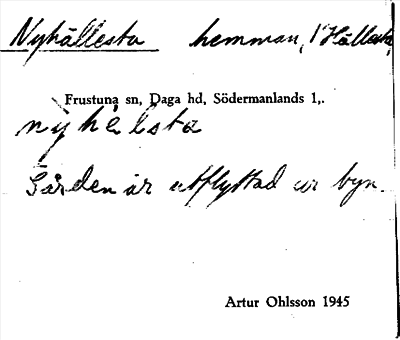 Nyhällesta hemman, i Hällesta,
Frustuna sn, Daga hd, Södermanlands l,.
nyhelsta
Gården är utflyttad ur byn.
Artur Ohlsson 1945